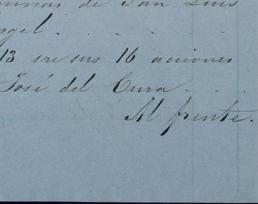 de San Luis
ngel . . . .
13 de sus 16 acciones
José del Cura . .
Al frente.